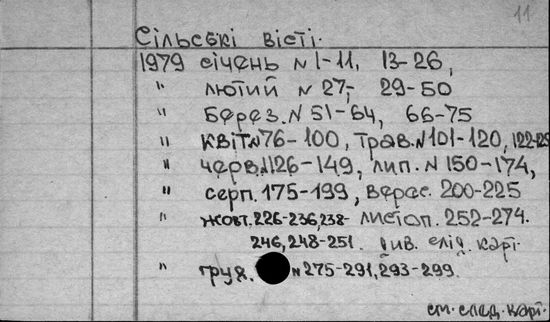 11
Сільські вісті.
1979 січень N 1-11, 13-26,
" лютий N 27-, 29-50
" Берез. N 51-64, 66-75
" квіт N 76-100, Трав. N 101-120, 122-125
" черв. N 126-149, лип. N 150-174,
" серп. 175-199, верес. 200-225
" жовт. 226-236, 238- листоп. 252-274.
246, 248-251. Див. слід. карт.
" груд. N 275-291, 293-299.
см. след. карт.